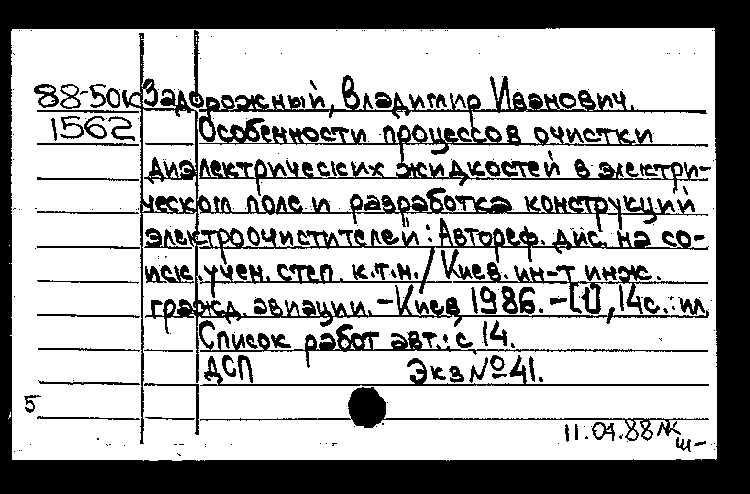 88-50к Задорожный, Владимир Иванович.
1562 Особенности процессов очистки
диэлектрических жидкостей в электри-
ческом поле и разработка конструкций
электроочистителей: Автореф. дис. на со-
иск. учен. степ. к.т.н. / Киев. ин-т инж.
гражд. авиации. - Киев, 1986. - [1], 14с.: ил.
Список работ авт.: с 14.
ДСП Экз №41.
5
11.04.88
ш-